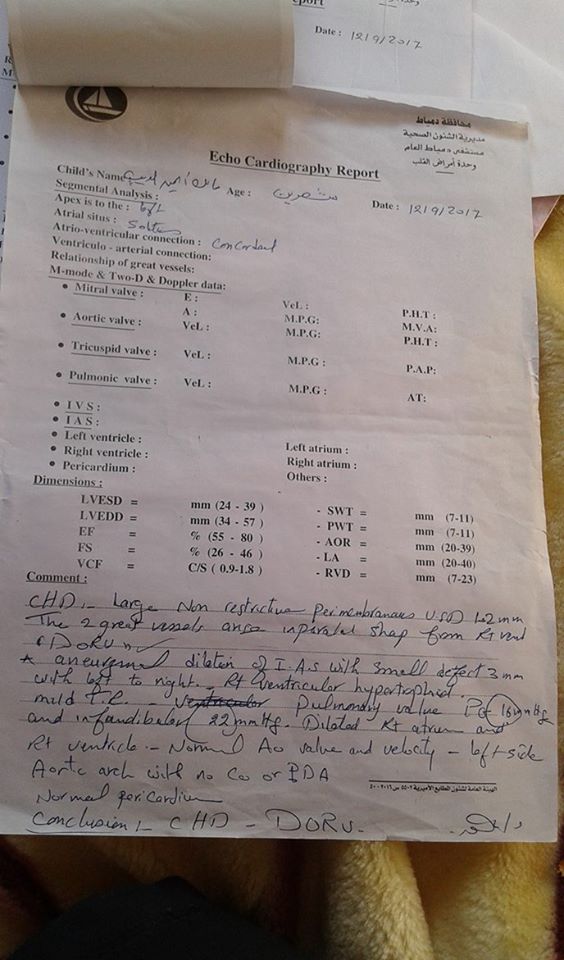 Date : 12/9/2017
محافظة دمياط
مديرية الشئون الصحية
مستشفى دمياط العام
وحدة أمراض القلب
Echo Cardiography Report
Child's Name Age : شهرين Date : 12/9/2017
Segmental Analysis :
Apex is to the : left
Atrial situs : Solitus
Atrio-ventricular connection : Concordant
Ventriculo - arterial connection:
Relationship of great vessels:
M-mode & Two-D & Doppler data:
• Mitral valve : E : VeL : P.H.T :
A : M.P.G: M.V.A:
• Aortic valve : VeL : M.P.G: P.H.T :
• Tricuspid valve : VeL : M.P.G : P.A.P:
• Pulmonic valve : VeL : M.P.G : AT:
• I V S :
• I A S :
• Left ventricle : Left atrium :
• Right ventricle : Right atrium :
• Pericardium : Others :
Dimensions :
LVESD = mm (24 - 39 ) - SWT = mm (7-11)
LVEDD = mm (34 - 57 ) - PWT = mm (7-11)
EF = % (55 - 80 ) - AOR = mm (20-39)
FS = % (26 - 46 ) - LA = mm (20-40)
VCF = C/S ( 0.9-1.8 ) - RVD = mm (7-23)
Comment :
CHD - Large Non restrictive perimembranous V.S.D mm
The 2 great vessels arise in parallel shap from Rt vent
"DORV"
* aneurysmal dilation of I.A.S with small defect 3 mm
with left to right - Rt ventricular hypertrophied -
mild T.R. - Pulmonary valve PG 16 mmHg
and infandibular 22 mmHg. Dilated Rt atrium and
Rt ventricle - Normal Ao valve and velocity - left side
Aortic arch with no Co or PDA
Normal pericardium
Conclusion :- CHD - DORV.